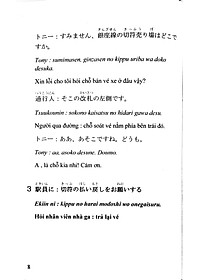 トニー：すみません、銀座線の切符売り場はどこで
すか。
Tony : sumimasen, ginzasen no kippu uriba wa doko
desuka.
Xin lỗi cho tôi hỏi chỗ bán vé xe ở đâu vậy?
通行人：そこの改札の左側です。
Tsuukounin : sokono kaisatsu no hidari gawa desu.
Người qua đường : chỗ soát vé nằm phía bên trái đó.
トニー：ああ、あそこですね。どうも。
Tony : aa, asoko desune. Doumo.
A , là chỗ kia nhỉ! Cám ơn.
3 駅員に：切符の払い戻しをお願いする
Ekiin ni : kippu no harai modoshi wo onegaisuru.
Hỏi nhân viên nhà ga : trả lại vé
8